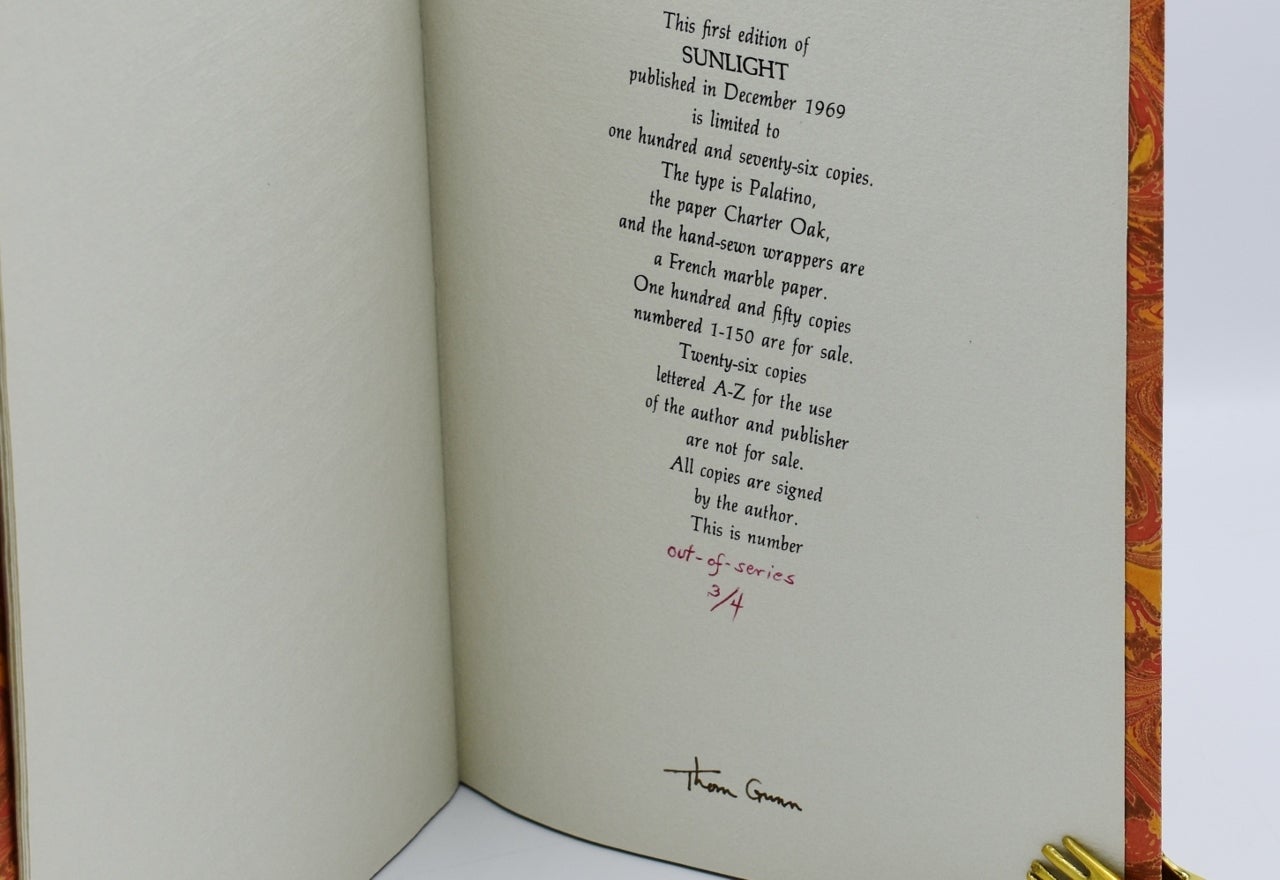 This first edition of
SUNLIGHT
published in December 1969
is limited to
one hundred and seventy-six copies.
The type is Palatino,
the paper Charter Oak,
and the hand-sewn wrappers are
a French marble paper.
One hundred and fifty copies
numbered 1-150 are for sale.
Twenty-six copies
lettered A-Z for the use
of the author and publisher
are not for sale.
All copies are signed
by the author.
This is number
out-of-series
3/4
Thom Gunn